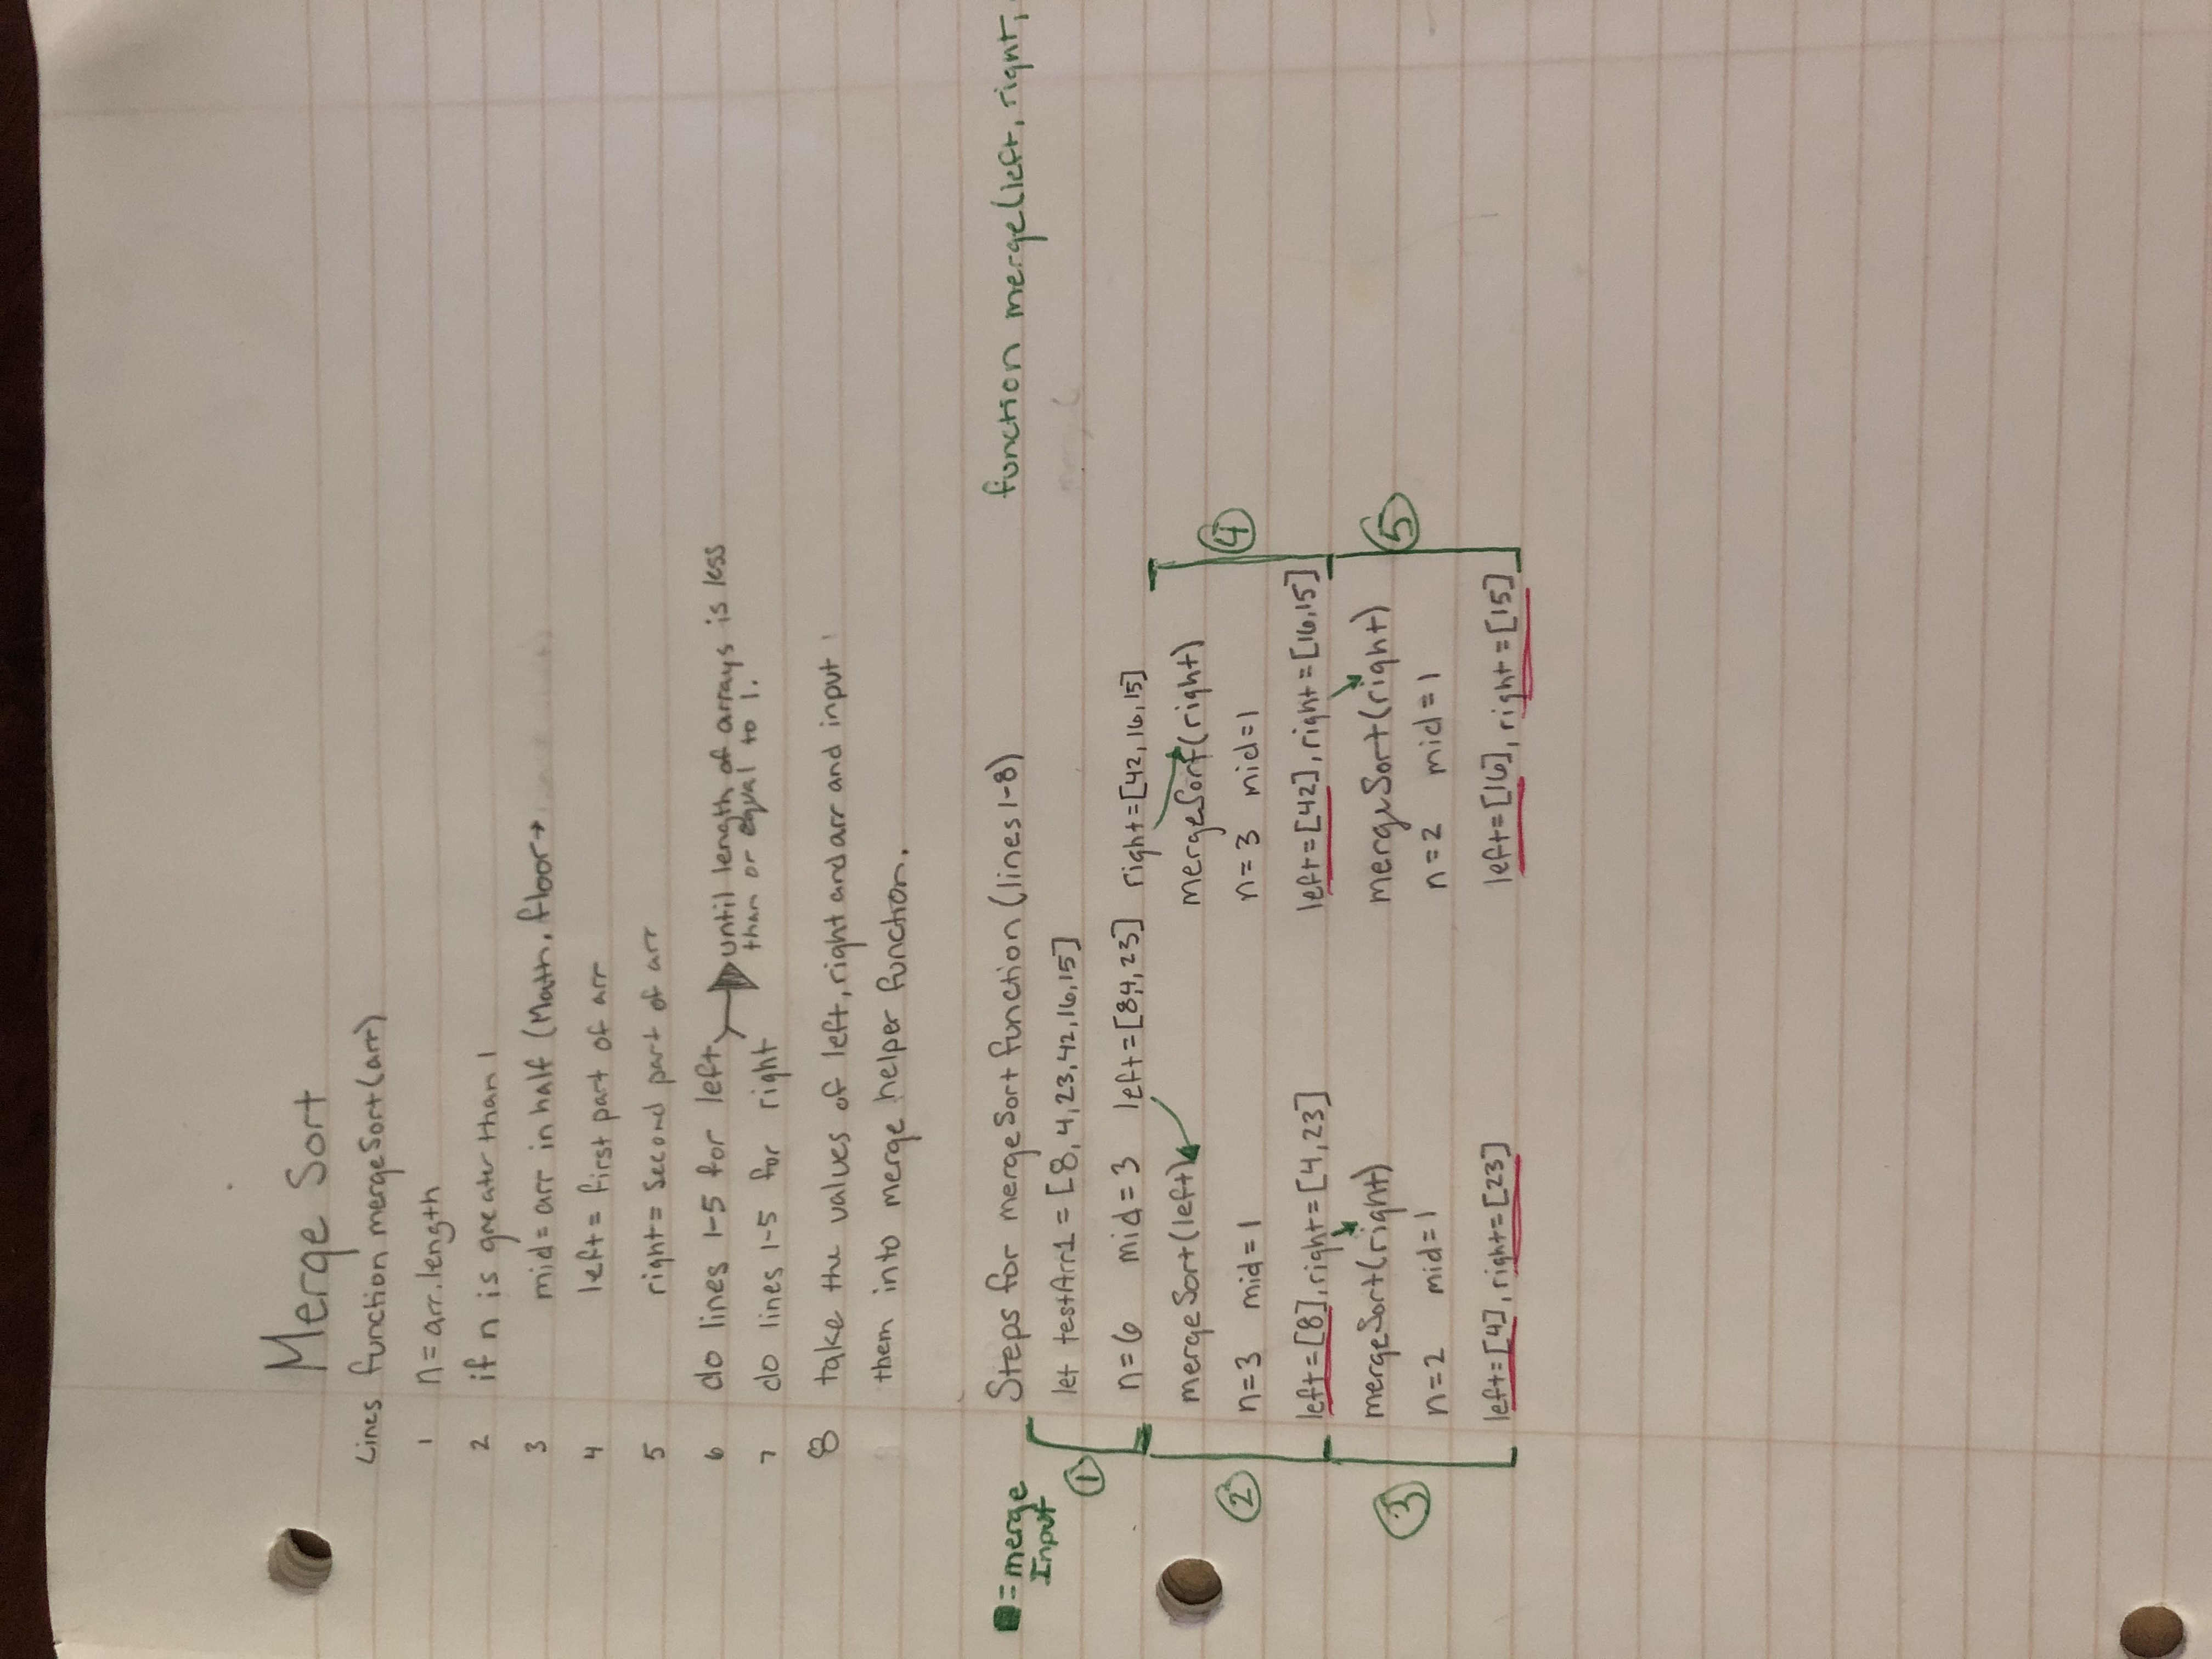 Merge Sort
Lines function mergeSort(arr)
1 n = arr.length
2 if n is greater than 1
3 mid = arr in half (Math.floor→
4 left = first part of arr
5 right = second part of arr
6 do lines 1-5 for left
until length of arrays is less
than or equal to 1.
7 do lines 1-5 for right
8 take the values of left, right and arr and input
them into merge helper function.
= merge
Input
Steps for mergeSort function (lines 1-8)
function merge(left, right,
① let testArr1 = [8, 4, 23, 42, 16, 15]
n=6 mid=3 left=[8,4,23] right=[42,16,15]
② mergeSort(left)
n=3 mid=1
left=[8], right=[4,23]
mergeSort(right) ④
n=3 mid=1
left=[42], right=[16,15]
③ mergeSort(right)
n=2 mid=1
left=[4], right=[23]
mergeSort(right) ⑤
n=2 mid=1
left=[16], right=[15]